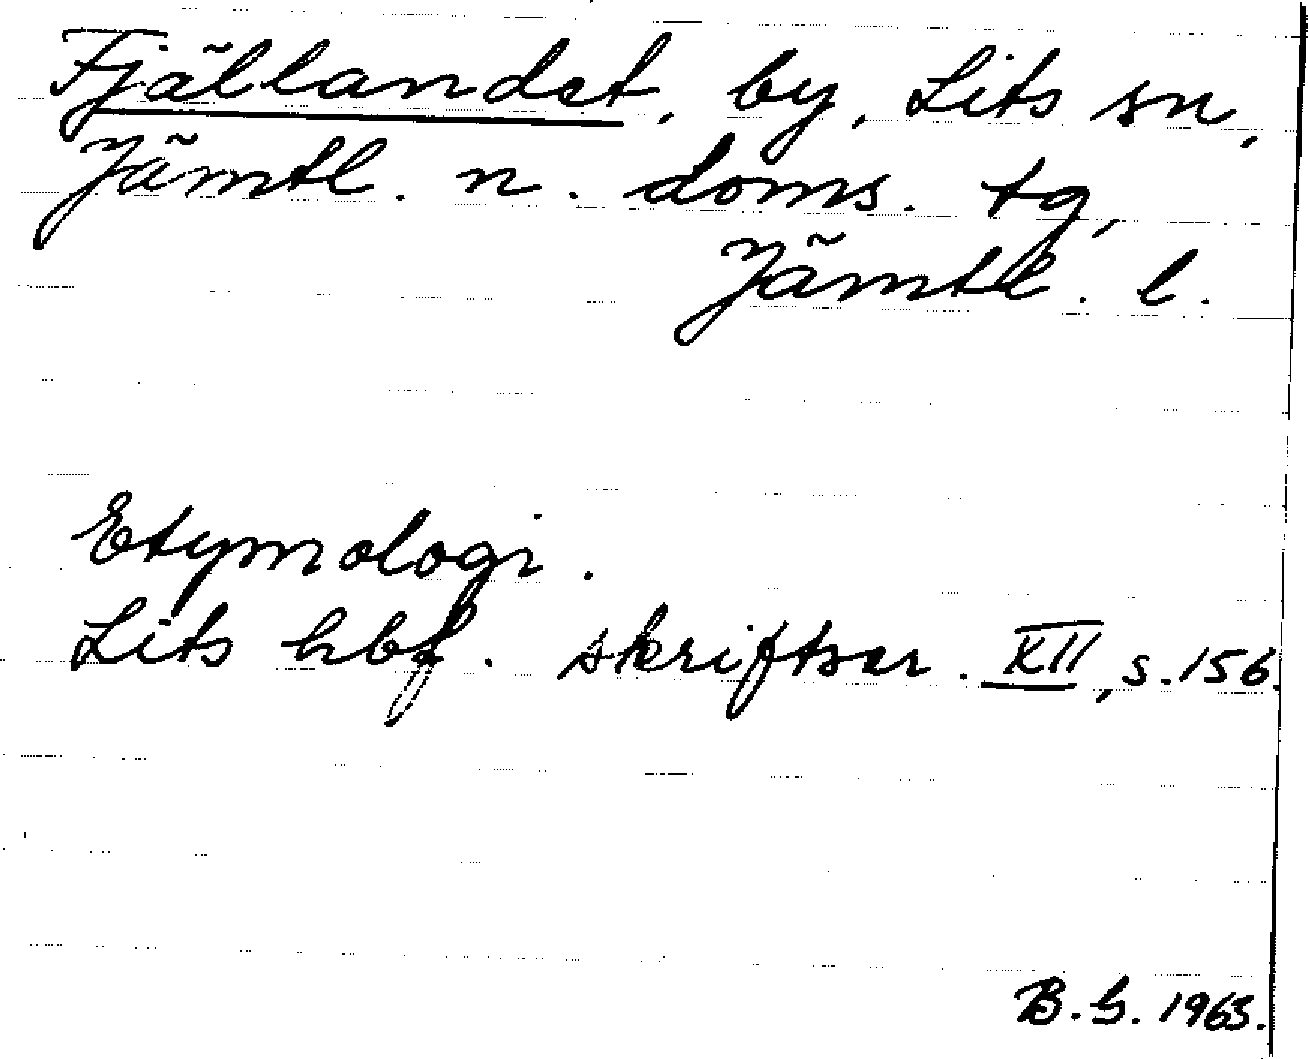 Fjällandet, by, Lits sn,
Jämtl. n. doms. tg,
Jämtl. l.
Etymologi.
Lits hbf. skriftser. XII, s. 156.
B. G. 1963.